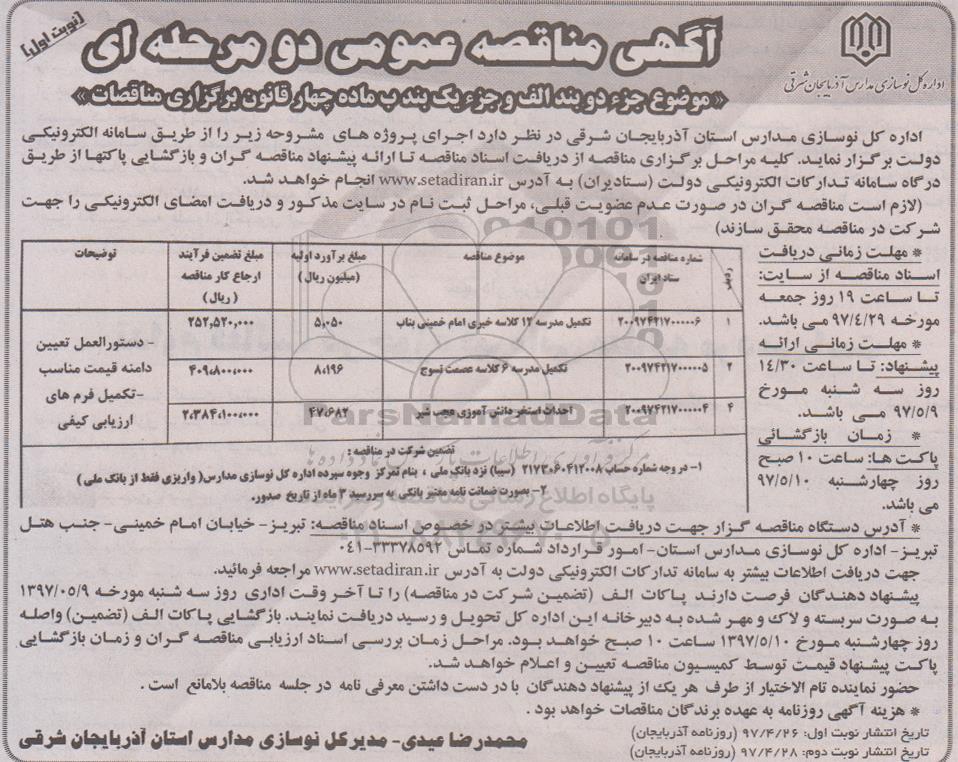 (نوبت اول)
آگهی مناقصه عمومی دو مرحله ای
اداره کل نوسازی مدارس آذربایجان شرقی
« موضوع جزء دو بند الف و جزء یک بند ب ماده چهار قانون برگزاری مناقصات »
اداره کل نوسازی مدارس استان آذربایجان شرقی در نظر دارد اجرای پروژه های مشروحه زیر را از طریق سامانه الکترونیکی
دولت برگزار نماید. کلیه مراحل برگزاری مناقصه از دریافت اسناد مناقصه تا ارائه پیشنهاد مناقصه گران و بازگشایی پاکتها از طریق
درگاه سامانه تدارکات الکترونیکی دولت (ستادیران) به آدرس www.setadiran.ir انجام خواهد شد.
(لازم است مناقصه گران در صورت عدم عضویت قبلی، مراحل ثبت نام در سایت مذکور و دریافت امضای الکترونیکی را جهت
شرکت در مناقصه محقق سازند)
* مهلت زمانی دریافت
اسناد مناقصه از سایت:
تا ساعت ۱۹ روز جمعه
مورخه ۹۷/۴/۲۹ می باشد.
* مهلت زمانی ارائه
پیشنهاد: تا ساعت ۱۴/۳۰
روز سه شنبه مورخ
۹۷/۵/۹ می باشد.
* زمان بازگشائی
پاکت ها: ساعت ۱۰ صبح
روز چهارشنبه ۹۷/۵/۱۰
می باشد.
ردیف شماره مناقصه در سامانه ستاد ایران موضوع مناقصه مبلغ برآورد اولیه (میلیون ریال) مبلغ تضمین فرآیند ارجاع کار مناقصه (ریال) توضیحات
۱ ۲۰۰۹۷۴۲۱۷۰۰۰۰۰۶ تکمیل مدرسه ۱۲ کلاسه خیری امام خمینی بناب ۵،۰۵۰ ۲۵۲،۵۲۰،۰۰۰
۲ ۲۰۰۹۷۴۲۱۷۰۰۰۰۰۵ تکمیل مدرسه ۶ کلاسه عصمت تسوج ۸،۱۹۶ ۴۰۹،۸۰۰،۰۰۰
۴ ۲۰۰۹۷۴۲۱۷۰۰۰۰۰۴ احداث استخر دانش آموزی عجب شیر ۴۷،۶۸۲ ۲،۳۸۴،۱۰۰،۰۰۰
- دستورالعمل تعیین
دامنه قیمت مناسب
-تکمیل فرم های
ارزیابی کیفی
تضمین شرکت در مناقصه :
۱- در وجه شماره حساب ۲۱۷۳۰۶۰۴۱۲۰۰۸ (سیبا) نزد بانک ملی ، بنام تمرکز وجوه سپرده اداره کل نوسازی مدارس( واریزی فقط از بانک ملی )
۲- بصورت ضمانت نامه معتبر بانکی به سررسید ۳ ماه از تاریخ صدور.
ParsNamadData
* آدرس دستگاه مناقصه گزار جهت دریافت اطلاعات بیشتر در خصوص اسناد مناقصه: تبریز- خیابان امام خمینی- جنب هتل
تبریز- اداره کل نوسازی مدارس استان- امور قرارداد شماره تماس ۳۳۳۷۸۵۹۲-۰۴۱
جهت دریافت اطلاعات بیشتر به سامانه تدارکات الکترونیکی دولت به آدرس www.setadiran.ir مراجعه فرمائید.
پیشنهاد دهندگان فرصت دارند پاکات الف (تضمین شرکت در مناقصه) را تا آخر وقت اداری روز سه شنبه مورخه ۱۳۹۷/۰۵/۹
به صورت سربسته و لاک و مهر شده به دبیرخانه این اداره کل تحویل و رسید دریافت نمایند. بازگشایی پاکات الف (تضمین) واصله
روز چهارشنبه مورخ ۱۳۹۷/۵/۱۰ ساعت ۱۰ صبح خواهد بود. مراحل زمان بررسی اسناد ارزیابی مناقصه گران و زمان بازگشایی
پاکت پیشنهاد قیمت توسط کمیسیون مناقصه تعیین و اعلام خواهد شد.
حضور نماینده تام الاختیار از طرف هر یک از پیشنهاد دهندگان با در دست داشتن معرفی نامه در جلسه مناقصه بلامانع است .
* هزینه آگهی روزنامه به عهده برندگان مناقصات خواهد بود .
تاریخ انتشار نوبت اول: ۹۷/۴/۲۶ (روزنامه آذربایجان)
تاریخ انتشار نوبت دوم: ۹۷/۴/۲۸ (روزنامه آذربایجان)
محمدرضا عیدی- مدیرکل نوسازی مدارس استان آذربایجان شرقی